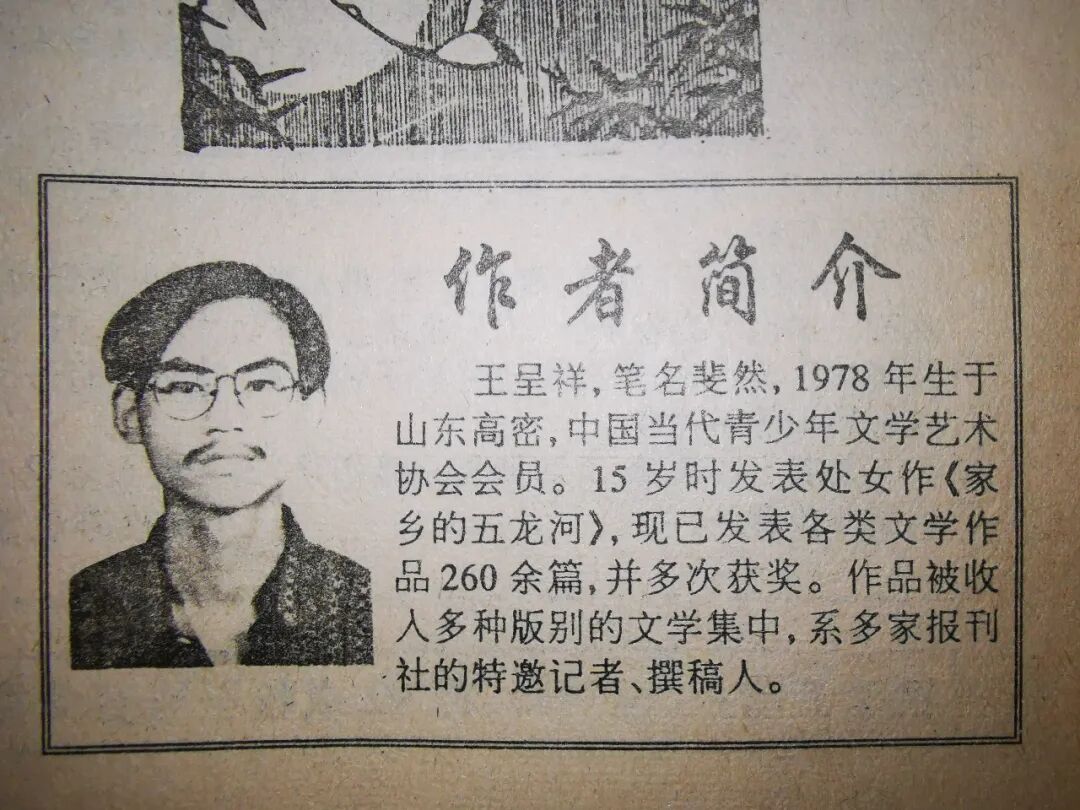 作者简介
王呈祥,笔名斐然,1978年生于
山东高密,中国当代青少年文学艺术
协会会员。15岁时发表处女作《家
乡的五龙河》,现已发表各类文学作
品260余篇,并多次获奖。作品被收
入多种版别的文学集中,系多家报刊
社的特邀记者、撰稿人。